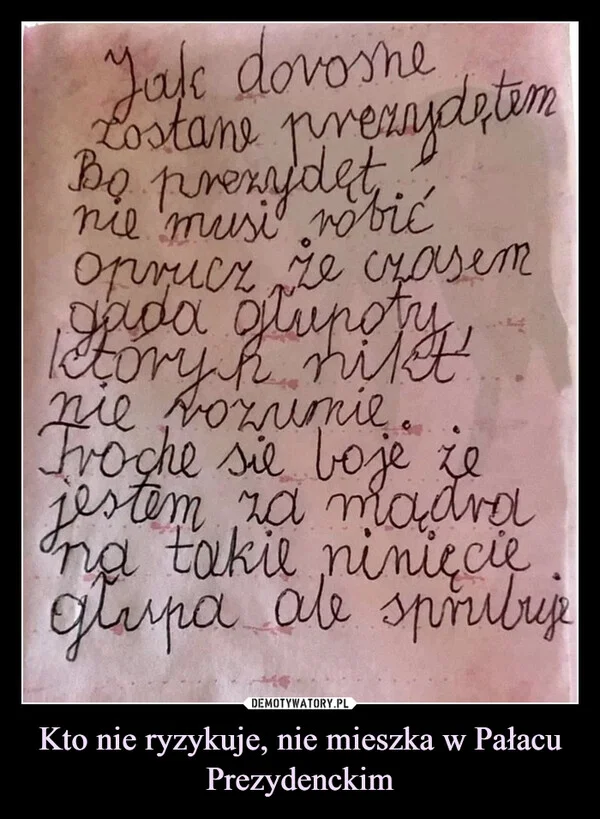 Jak dorosne
zostane prezydętem
Bo prezydęt
nie musi robić
oprucz że czasem
gada głupoty
których nikt
nie rozumie.
Troche sie boje że
jestem za mądra
na takie ninięcie
głupa ale sprubuje
DEMOTYWATORY.PL
Kto nie ryzykuje, nie mieszka w Pałacu
Prezydenckim